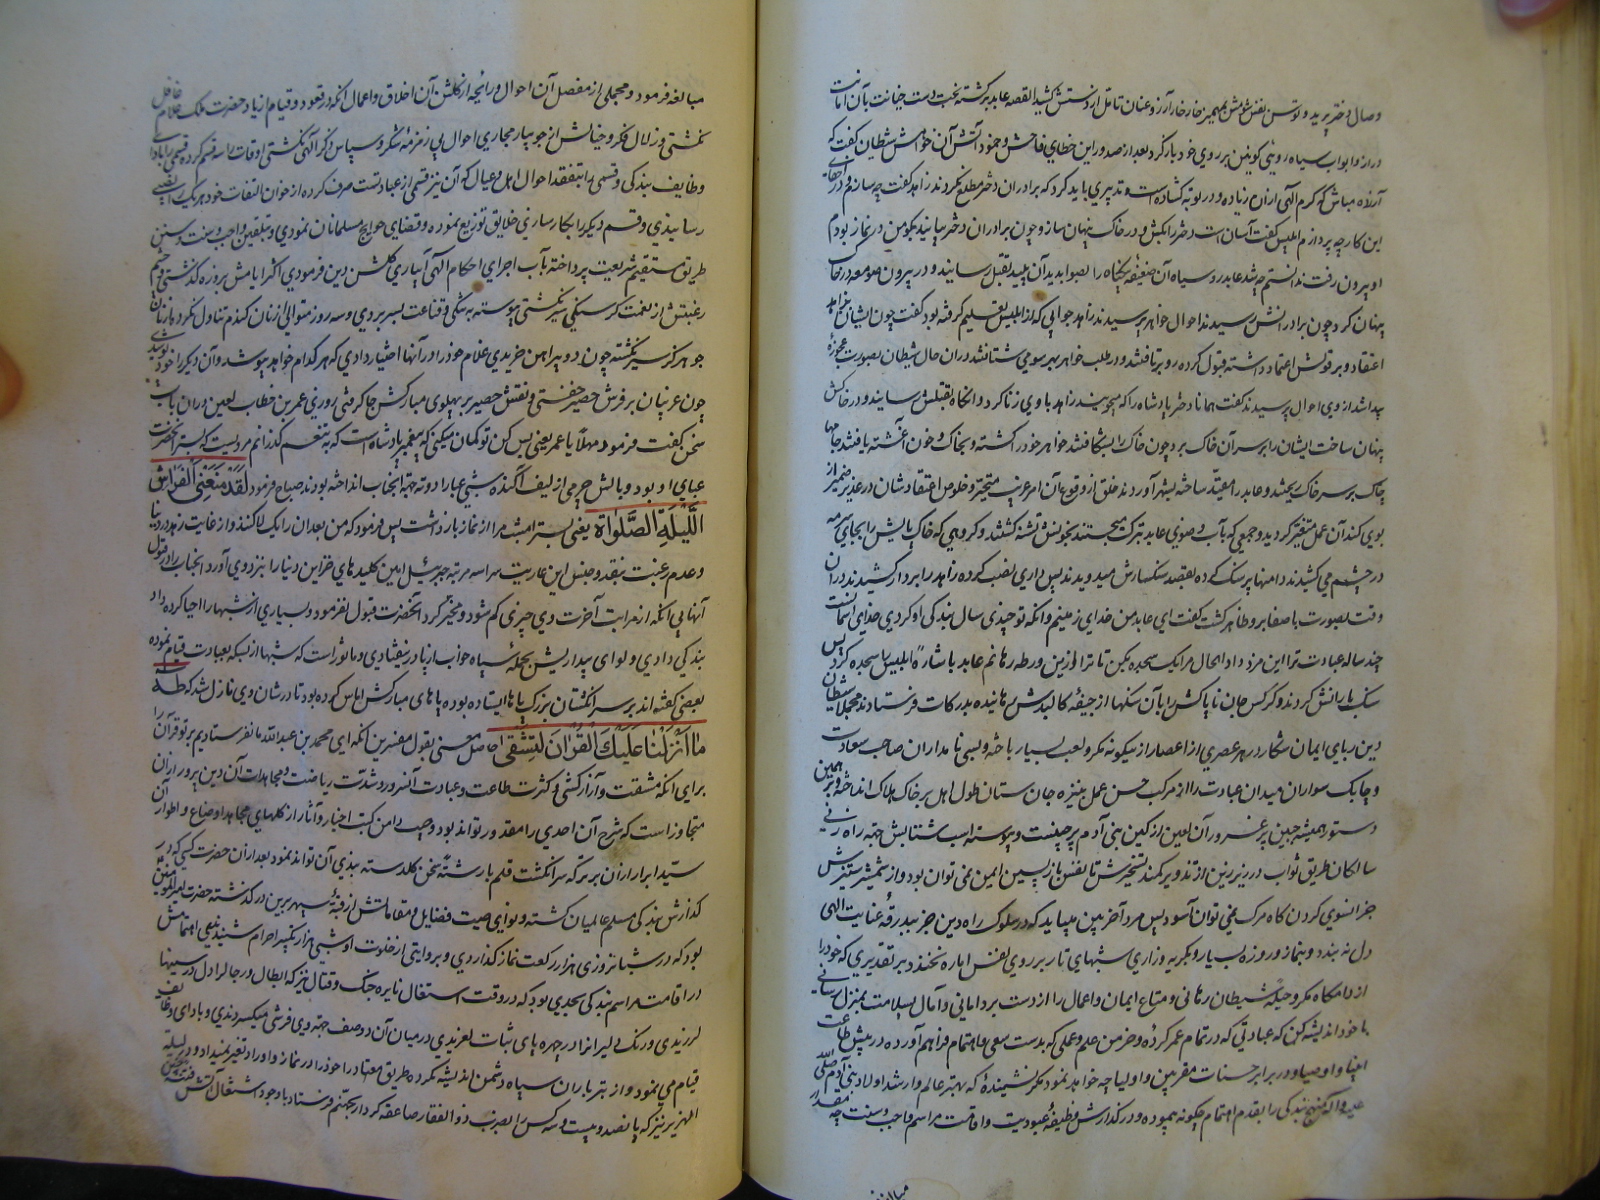 وصال دختر برید و توسن نفس شومش بمهمیز خار خار آرزو عنان تامل از دستش کشید القصه عابد برگشته بخت دست خیانت بآن امانت
دراز و ابواب سیاه روئی کونین بر روی خود باز کرد بعد از صدور این خطای فاحش و خمود آتش آن خواهش شیطان گفت که
آزرده مباش که کرم الهی از ان زیاده و در توبه کشاده است و تدبیری باید کرد که برادران دختر مطلع نکردند زاهد گفت چه سازم و در اخفای
این کار چه پردازم ابلیس گفت آسان است دختر را بکش و در خاک پنهان ساز و چون برادران دختر بیایند بکو من در نماز بودم
او بیرون رفت ندانستم چه شد عابد رو سیاه آن ضعیفه بیکناه را بصوابدید آن پلید بقتل رسانید و در بیرون صومعه در خاک
پنهان کرد چون برادرانش رسیدند احوال خواهر پرسیدند زاهد جوابی که از ابلیس تعلیم کرفته بود گفت چون ایشان بزاهد
اعتقاد و بر قولش اعتماد داشتند قبول کرده رو برتافتند و در طلب خواهر بهر سو می شتافتند در ان حال شیطان بصورت عجوزۀ
پیدا شد از وی احوال پرسیدند گفت همانا دختر پادشاه را که میجویید زاهد با وی زنا کرد و انکاه بقتلش رسانید و در خاکش
پنهان ساخت ایشان را بر سر آن خاک برد چون خاک را بشکافتند خواهر خود را کشته و بخاک و خون آغشته یافتند جامها
چاک بر سر خاک ریختند و عابد را مقید ساخته بشهر آوردند خلق از وقوع آن امر غریب متحیر و خلوص اعتقادشان در غدیر ضمیر از
بوی کند آن عمل متغیر کردید و جمعی که بآب وضوی عابد تبرک میجستند بخونش تشنه کشتند و کروهی که خاک پایش را بجای سرمه
در چشم می کشیدند دامنها پر سنک کرده بقصد سنکسارش میدویدند پس داری نصب کرده زاهد را بر دار کشیدند در ان
وقت بصورت با صفا بر و ظاهر کشت گفت ای عابد من خدای زمینم و انکه تو چندی سال بندکی او کردی خدای آسمانست
چند ساله عبادت ترا این مزد داد الحال مرا یک سجده بکن تا ترا ازین ورطه رهانم عابد با شارۀ ابلیس را سجده کرد پس
سنک بارانش کردند و کرکس جان ناپاکش را بآن سنکها از جیفه کالبدش رهانیده بدرکات فرستادند مجملا شیطان
دین ربای ایمان شکار در هر عصری از اعصار از ینکونه مکر و لعب بسیار باخته و بسی نامداران صاحب سعادت
و چابک سواران میدان عبادت را از مرکب حسن عمل بنیزه جان ستان طول امل بر خاک هلاک انداخته و برهمین
دستور همیشه جبین پر غرور آن لعین از کین بنی آدم پر چینست و پیوسته اسب شتابش جهة راه زنی
سالکان طریق ثواب در زیر زین از تد و پر کمند تسخیرش تا نفس بازپسین ایمن نمی توان بود و از شمشیر ستیزش
جز انسوی کردن کاه مرک نمی توان آسود پس مرد آخر بین میباید که در سلوک راه دین جز ببدرقۀ عنایت الهی
دل نه بندد و بنماز و روزه بسیار و بکریه و زاری شبهای تار بر روی نفس اماره نخندد بهر تقدیری که خود را
از دامکاه مکر و حیله شیطان رهانی و متاع ایمان و اعمال را از دست برد امانی و آمال بسلامت بمنزل رسانی
با خود اندیشه کن که عبادتی که در تمام عمر کرده و خرمن علم و عملی که بدست سعی و اهتمام فراهم آورده در پیش طاعت
انبیا و اوصیا و در برابر حسنات مقربین و اولیا چه خواهد نمود مکر نشنیدۀ که بهتر عالم و ارشد اولاد بنی آدم صلی الله
علیه و اله نهج بندکی را بقدم اهتمام چکونه پیموده و در کذارش وظیفه عبودیت و اقامت مراسم واجب و سنت چه مقدار
مبالغه فرمود و مجملی از مفصل آن احوال و رایحه از کلشن آن اخلاق و اعمال انکه در قعود و قیام از یاد حضرت ملک علام غافل
نکشتی و زلال فکر و خیالش از جویبار مجاری احوال بی زمزمه شکر و سپاس و ذکر الهی نکشتی اوقات را سه قسم کرده قسمی را باداء
وظایف بندکی و قسمی را بتفقد احوال اهل و عیال که آن نیز قسمی از عبادتست صرف کرده از خوان التفات خود هر یک را نصیبی
رسانیدی و قسم دیکر را بکار سازی خلایق توزیع نموده و قضای حوایج مسلمانان نمودی و بتلقین واجب و سنت و سنن
طریق مستقیم شریعت پرداخته بآب اجرای احکام الهی آبیاری کلشن دین فرمودی اکثر ایامش بروزه کذشتی و چشم
رغبتش از نعمت کرسنکی سیر نکشتی پیوسته به تنکی و قناعت بسر بردی و سه روز متوالی از نان کندم تناول نکرد و از نان
جو هرکز سیر نکشته چون دو پیراهن خریدی غلام خود را در آنها اختیار دادی که هر کدام خواهد بپوشد و آن دیکر را خود پوشیدی
چون عریان بر فرش حصیر خفتی و نقش حصیر بر پهلوی مبارکش جا کرفتی روزی عمر بن خطاب لعین در ان باب
سخن گفت فرمود مهلا یا عمر یعنی بس کن تو کمان میکنی که پیغمبر پادشاه است که به تنعم کذرانم مرویست که بستر آنحضرت
عبای او بود و بالش چرمی از لیف آکنده شبی عبا را دو ته جهة آنجناب انداخته بودند صباح فرمود لَقَدْ مَنَعَنِی الْفِرَاشُ
اللَّیْلَةَ الصَّلَوٰاةَ یعنی بستر امشب مرا از نماز بازداشت پس فرمود که من بعد ان را یک لا کنند و از غایت زهد در دنیا
و عدم رغبت بنقد و جنس این عاریت سرا سه مرتبه جبرئیل امین کلیدهای خزاین دنیا را بنزد وی آورد آنجناب را در قبول
آنها بی انکه از مراتب آخرت وی چیزی کم شود مخیر کرد آنحضرت قبول نفرمود و بسیاری از شبها را احیا کرده داد
بندکی دادی و لوای بیداریش بجمله سپاه خواب از پا در نیفتادی و ماثور است که شبها از بسکه بعبادت قیام نموده
بعضی گفته اند بر سر انکشتان بزرک پاها ایستاده بوده پاهای مبارکش اماس کرده بود تا در شان وی نازل شد که طه
مٰا اَنْزَلْنٰا عَلَیْكَ الْقُرْاٰنَ لِتَشْقیٰ حاصل معنی بقول مفسرین آنکه ای محمد بن عبد الله ما نفرستادیم بر تو قرآن را
برای آنکه مشقت و آزار کشی و کثرت طاعت و عبادت آنسرور و شدت ریاضت و مجاهدات آن دین پرور از ان
متجاوز است که شرح آن احدی را مقدور تواند بود و جیب و دامن کتب اخبار و آثار از کلهای محامد اوضاع و اطوار آن
سید ابرار از ان پر تر که سر انکشت قلم با رشته سخن کلدسته بندی آن تواند نمود بعد از ان حضرت کسی که در
کذارش بندکی مسلم عالمیان کشته و نوای صیت فضایل و مقاماتش از قبۀ سپهر برین در کذشته حضرت امیرالمومنین
بود که در شبانروزی هزار رکعت نماز کذاردی و بروایتی از خلوت او شبی هزار تکبیر احرام شنیدندی اهتمامش
در اقامت مراسم بندکی بحدی بود که در وقت اشتعال نایره جنک و قتال نیز که ابطال و رجال را دل در سینها
لرزیدی و رنک دلیرانرا در چهره پای ثبات لغزیدی در میان آن دو صف جهة وی فرشی میکستردندی و باداي وظایف
قیام می نمود و از تیر باران سپاه دشمن اندیشه نکرده طریق معتاد را خود را در نماز و اوراد تغیر نمیداد و در لیلة
الهریر نیز که پانصد و بیست و سه کس را بضرب ذوالفقار صاعقه کردار بجهنم فرستاد با وجود اشتغال آتش فتنه